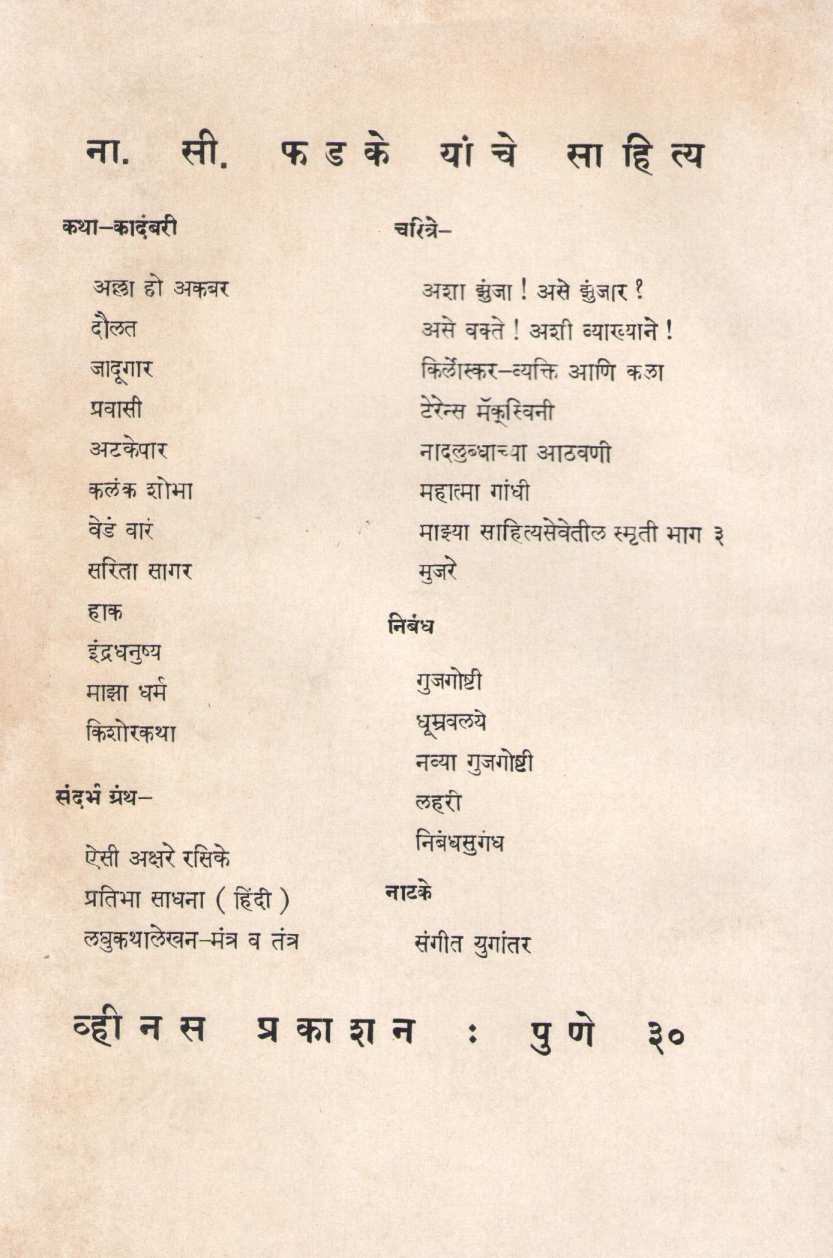 ना. सी. फडके यांचे साहित्य
कथा–कादंबरी
अल्ला हो अकबर
दौलत
जादूगार
प्रवासी
अटकेपार
कलंक शोभा
वेडं वारं
सरिता सागर
हाक
इंद्रधनुष्य
माझा धर्म
किशोरकथा
संदर्भ ग्रंथ–
ऐसी अक्षरे रसिके
प्रतिभा साधना ( हिंदी )
लघुकथालेखन–मंत्र व तंत्र
चरित्रे–
अशा झुंजा ! असे झुंजार ?
असे वक्ते ! अशी व्याख्याने !
किर्लोस्कर–व्यक्ति आणि कला
टेरेन्स मॅक्स्विनी
नादलुब्धाच्या आठवणी
महात्मा गांधी
माझ्या साहित्यसेवेतील स्मृती भाग ३
मुजरे
निबंध
गुजगोष्टी
धूम्रवलये
नव्या गुजगोष्टी
लहरी
निबंधसुगंध
नाटके
संगीत युगांतर
व्हीनस प्रकाशन : पुणे ३०